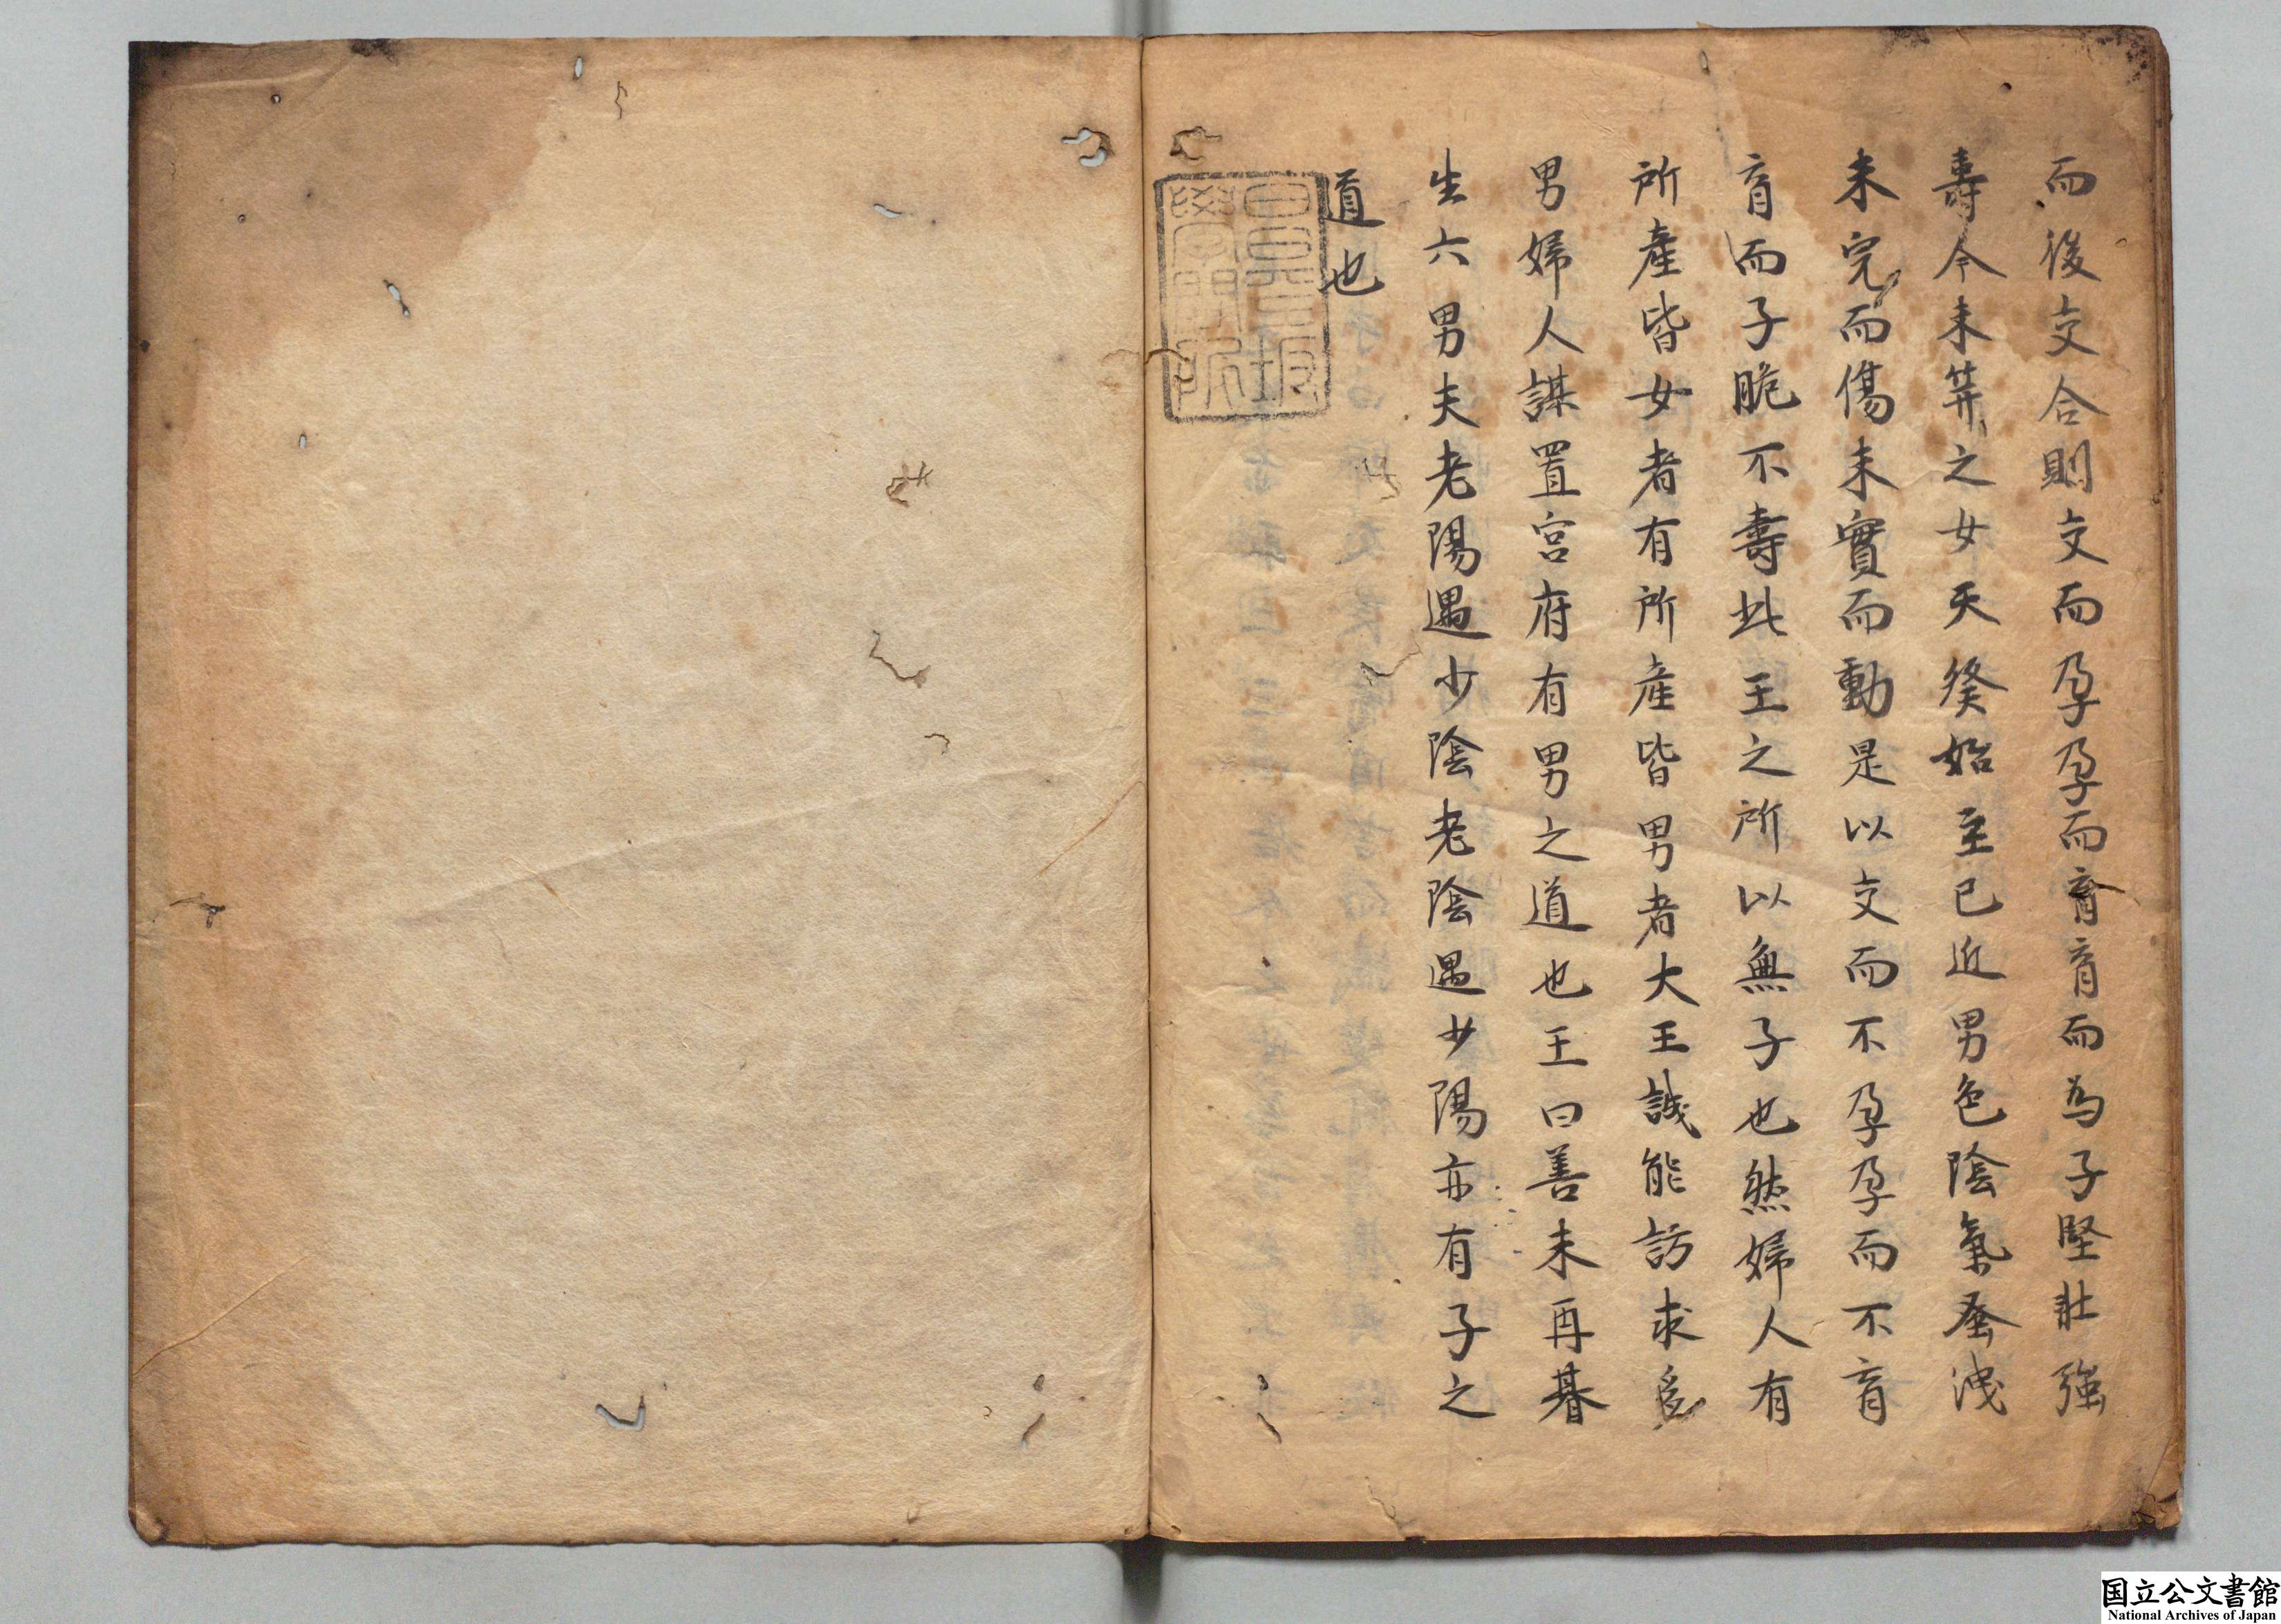 而後交合則交而孕孕而育育而為子堅壯強
壽今未笄之女天癸始至已近男色陰氣蚤洩
未完而傷未實而動是以交而不孕孕而不育
育而子脆不壽此王之所以無子也然婦人有
所產皆女者有所產皆男者大王誠能訪求多
男婦人謀置宮府有男之道也王曰善未再朞
生六男夫老陽遇少陰老陰遇少陽亦有子之
道也
昌平坂
學問所
国立公文書館
National Archives of Japan